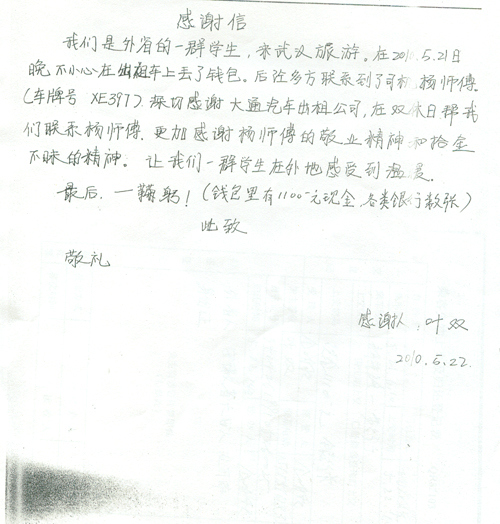 感谢信
我们是外省的一群学生，来武汉旅游。在2010.5.21日
晚不小心在出租车上丢了钱包。后经多方联系到了司机杨师傅.
(车牌号 XE397).深切感谢大通汽车出租公司，在双休日帮我
们联系杨师傅.更加感谢杨师傅的敬业精神和拾金
不昧的精神。让我们一群学生在外地感受到温暖.
最后.一鞠躬！(钱包里有1100元现金 各类银行数张)
此致
敬礼
感谢人：叶双
2010.5.22.